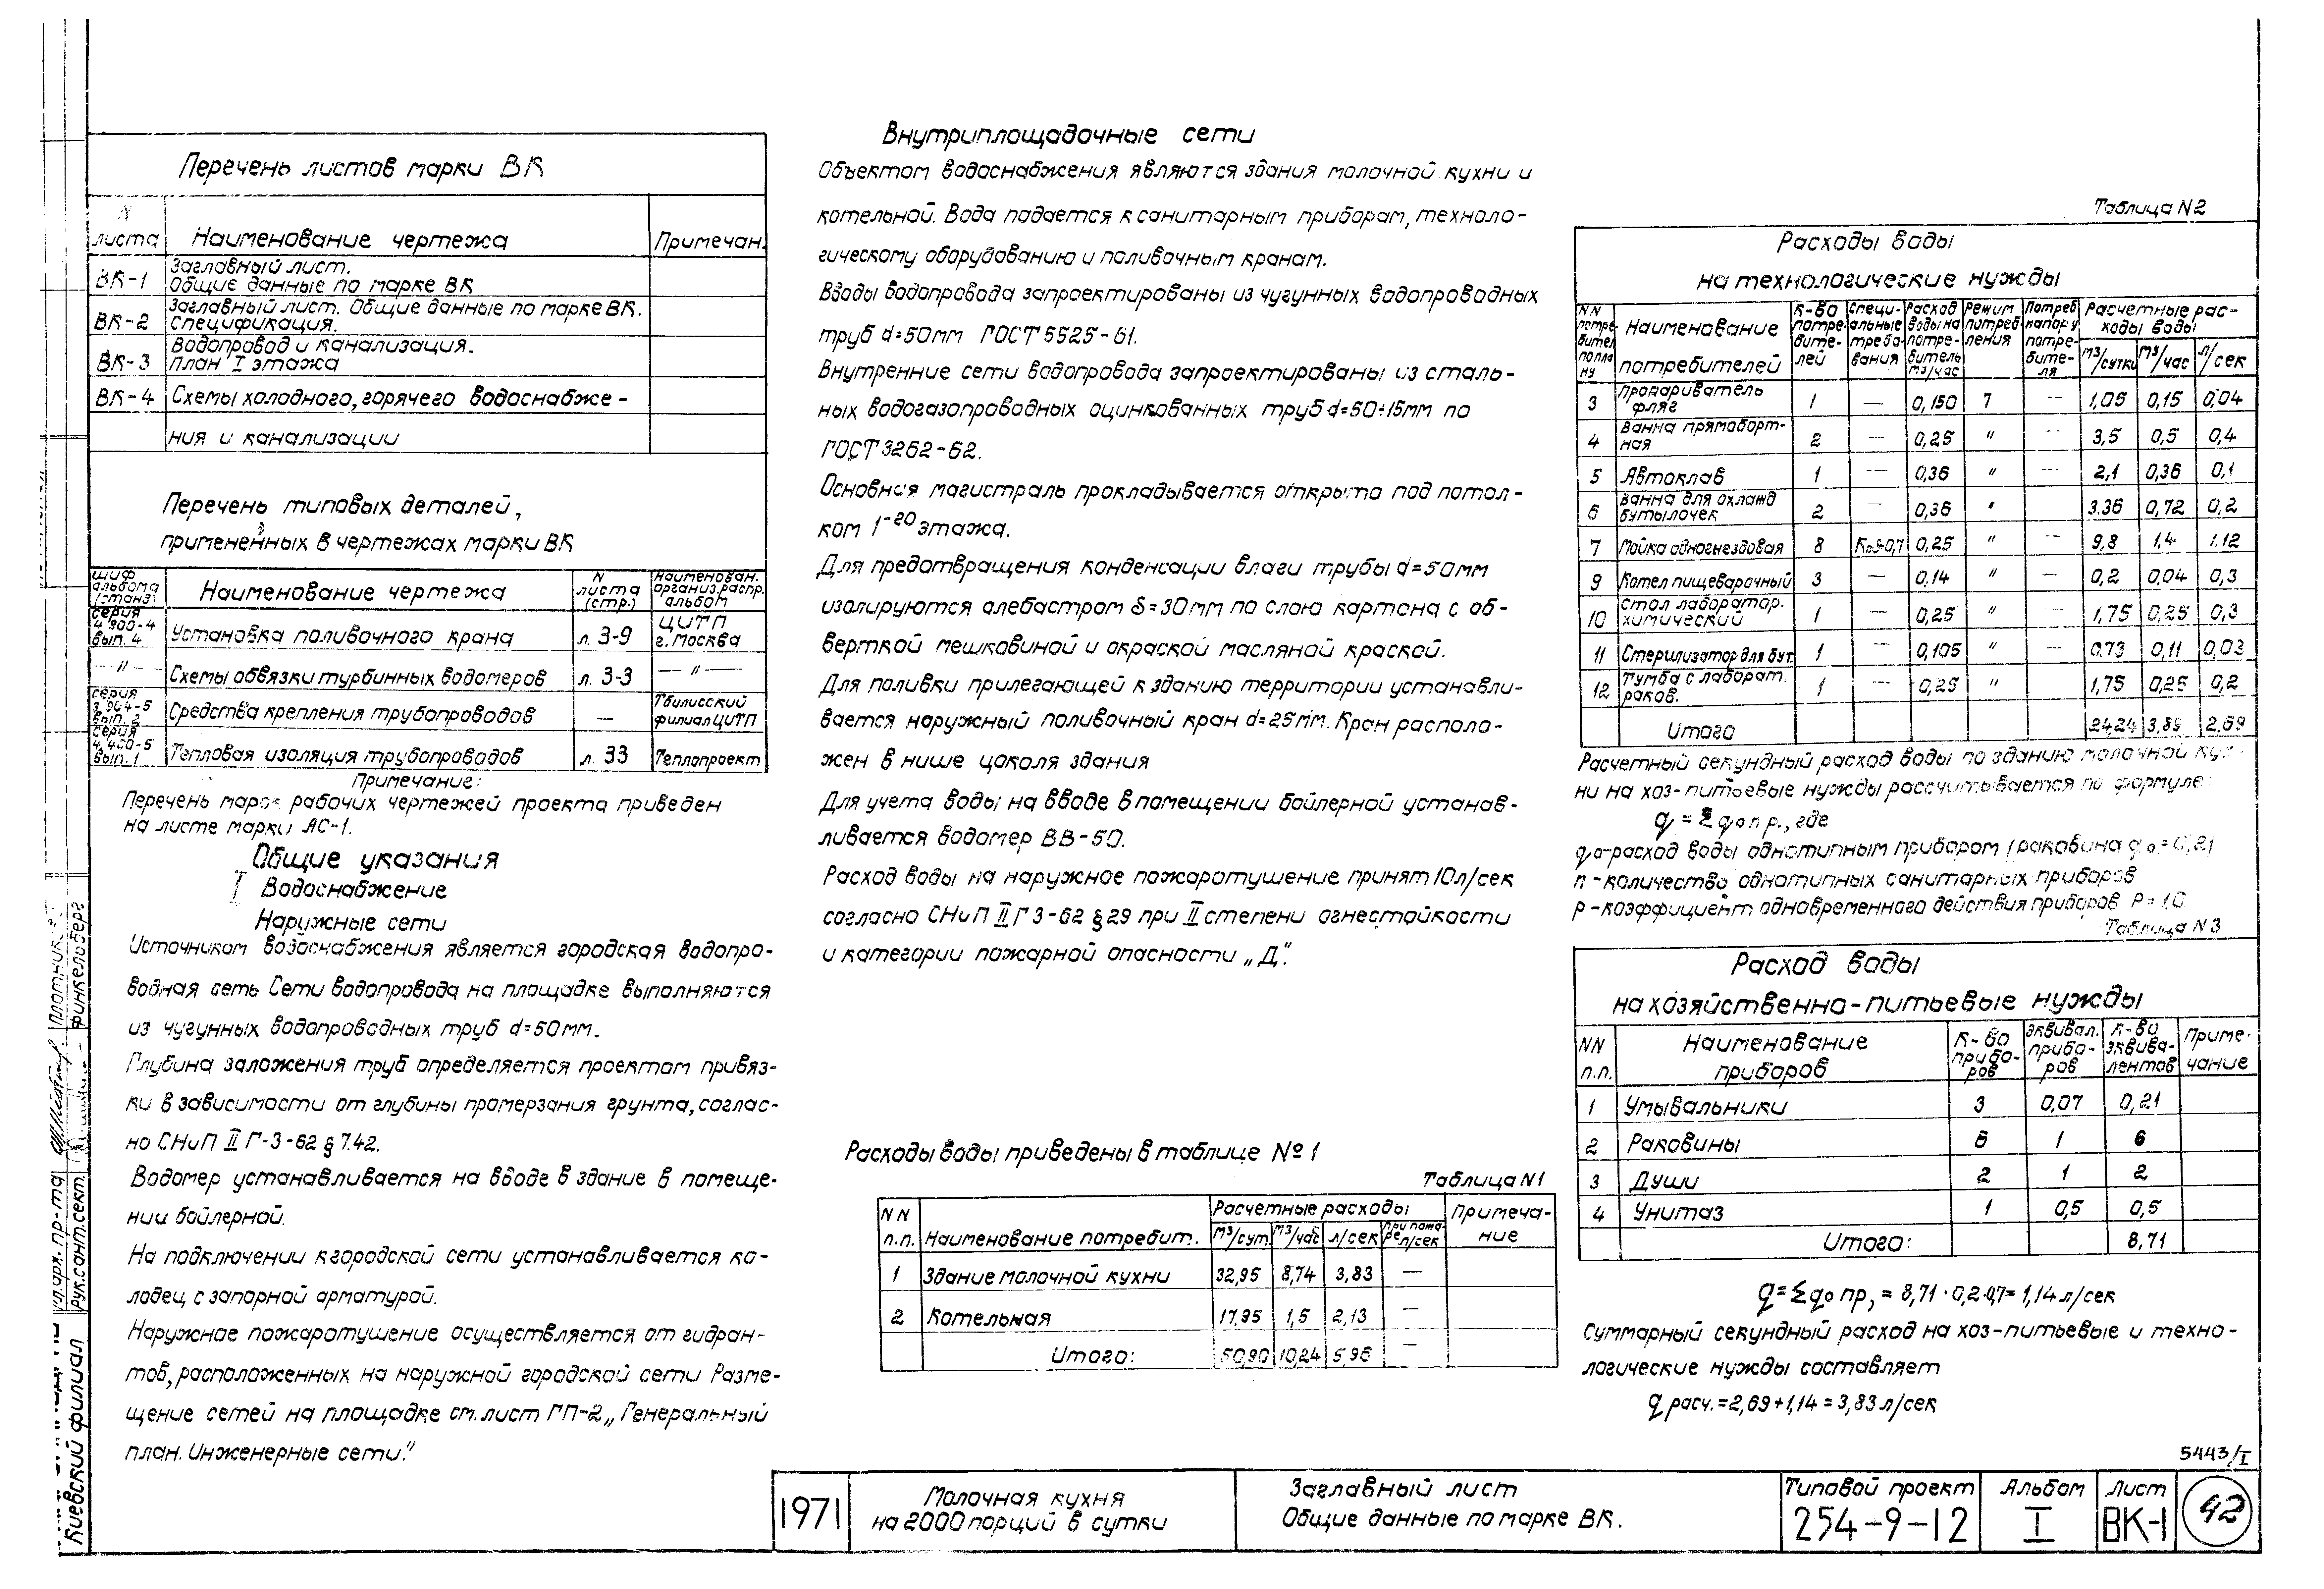 Перечень листов марки ВК
N листа | Наименование чертежа | Примечан.
ВК-1 | Заглавный лист. Общие данные по марке ВК
ВК-2 | Заглавный лист. Общие данные по марке ВК. Спецификация.
ВК-3 | Водопровод и канализация. План I этажа
ВК-4 | Схемы холодного, горячего водоснабже-
ния и канализации
Перечень типовых деталей,
примененных в чертежах марки ВК
шиф альбома (станз) | Наименование чертежа | N листа (стр.) | Наименован. организ. распр. альбом
серия 4.900-4 вып. 4 | Установка поливочного крана | л. 3-9 | ЦИТП г. Москва
—"— | Схемы обвязки турбинных водомеров | л. 3-3 | —"—
серия 3.904-5 вып. 2 | Средства крепления трубопроводов | — | Тбилисский филиал ЦИТП
серия 4.400-5 вып. 1 | Тепловая изоляция трубопроводов | л. 33 | Теплопроект
Примечание:
Перечень марок рабочих чертежей проекта приведен
на листе марки АС-1.
Общие указания
I Водоснабжение
Наружные сети
Источником водоснабжения является городская водопро-
водная сеть Сети водопровода на площадке выполняются
из чугунных водопроводных труб d=50мм.
Глубина заложения труб определяется проектом привяз-
ки в зависимости от глубины промерзания грунта, соглас-
но СНиП II Г-3-62 § 7.42.
Водомер устанавливается на вводе в здание в помеще-
нии бойлерной.
На подключении к городской сети устанавливается ко-
лодец с запорной арматурой.
Наружное пожаротушение осуществляется от гидран-
тов, расположенных на наружной городской сети Разме-
щение сетей на площадке см. лист ГП-2 „Генеральный
план. Инженерные сети."
Внутриплощадочные сети
Объектом водоснабжения являются здания молочной кухни и
котельной. Вода подается к санитарным приборам, техноло-
гическому оборудованию и поливочным кранам.
Вводы водопровода запроектированы из чугунных водопроводных
труб d=50мм ГОСТ 5525-61.
Внутренние сети водопровода запроектированы из сталь-
ных водогазопроводных оцинкованных труб d=50÷15мм по
ГОСТ 3262-62.
Основная магистраль прокладывается открыто под потол-
ком 1-го этажа.
Для предотвращения конденсации влаги трубы d=50мм
изолируются алебастром δ=30мм по слою картона с об-
верткой мешковиной и окраской масляной краской.
Для поливки прилегающей к зданию территории устанавли-
вается наружный поливочный кран d=25мм. Кран располо-
жен в нише цоколя здания
Для учета воды на вводе в помещении бойлерной устанав-
ливается водомер ВВ-50.
Расход воды на наружное пожаротушение принят 10л/сек
согласно СНиП II Г 3-62 § 29 при II степени огнестойкости
и категории пожарной опасности „Д".
Расходы воды приведены в таблице №1
Таблица N1
NN п.п. | Наименование потребит. | Расчетные расходы | Примеча-ние
м³/сут. | м³/час | л/сек | При пожаре л/сек
1 | Здание молочной кухни | 32,95 | 8,74 | 3,83 | —
2 | Котельная | 17,95 | 1,5 | 2,13 | —
Итого: | 50,90 | 10,24 | 5,96 | —
Таблица N2
Расходы воды
на технологические нужды
NN потребител по плану | Наименование потребителей | К-во потре-бите-лей | Специ-альные требо-вания | Расход воды на потре-битель м³/час | Режим потреб-ления | Потреб напору потре-бите-ля | Расчетные рас-ходы воды
м³/сутки | м³/час | л/сек
3 | Пропариватель фляг | 1 | — | 0,150 | 7 | — | 1,05 | 0,15 | 0,04
4 | Ванна прямоборт-ная | 2 | — | 0,25 | " | — | 3,5 | 0,5 | 0,4
5 | Автоклав | 1 | — | 0,36 | " | — | 2,1 | 0,36 | 0,1
6 | Ванна для охлажд бутылочек | 2 | — | 0,36 | " | 3.36 | 0,72 | 0,2
7 | Мойка одногнездовая | 8 | Ко=0,7 | 0,25 | " | — | 9,8 | 1,4 | 1,12
9 | Котел пищеварочный | 3 | — | 0,14 | " | — | 0,2 | 0,04 | 0,3
10 | Стол лаборатор. химический | 1 | — | 0,25 | " | 1,75 | 0,25 | 0,3
11 | Стерилизатор для бут. | 1 | — | 0,105 | " | — | 0,73 | 0,11 | 0,03
12 | Тумба с лаборат. раков. | 1 | — | 0,25 | " | 1,75 | 0,25 | 0,2
Итого | 24,24 | 3,89 | 2,69
Расчетный секундный расход воды по зданию молочной кух-
ни на хоз-питьевые нужды рассчитывается по формуле:
q = Σ q₀ n p., где
q₀-расход воды однотипным прибором (раковина q₀=0,2)
n-количество однотипных санитарных приборов
p-коэффициент одновременного действия приборов
Таблица N3
Расход воды
на хозяйственно-питьевые нужды
NN п.п. | Наименование приборов | К-во прибо-ров | эквивал. прибо-ров | К-во эквива-лентов | Приме-чание
1 | Умывальники | 3 | 0,07 | 0,21
2 | Раковины | 6 | 1 | 6
3 | Души | 2 | 1 | 2
4 | Унитаз | 1 | 0,5 | 0,5
Итого: | 8,71
q=Σq₀ пр, = 8,71·0,2·0,7= 1,14 л/сек
Суммарный секундный расход на хоз-питьевые и техно-
логические нужды составляет
q расч.=2,69+1,14=3,83 л/сек
5443/I
1971 | Молочная кухня на 2000 порций в сутки | Заглавный лист Общие данные по марке ВК. | Типовой проект 254-9-12 | Альбом I | Лист ВК-1 | 42
Киевский филиал
рук. сант. сект.
Финкельберг